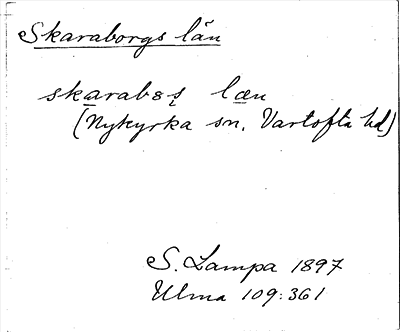 Skaraborgs län
skarabos læn
(Nykyrka sn, Vartofta hd)
S. Lampa 1897
Ulma 109:361